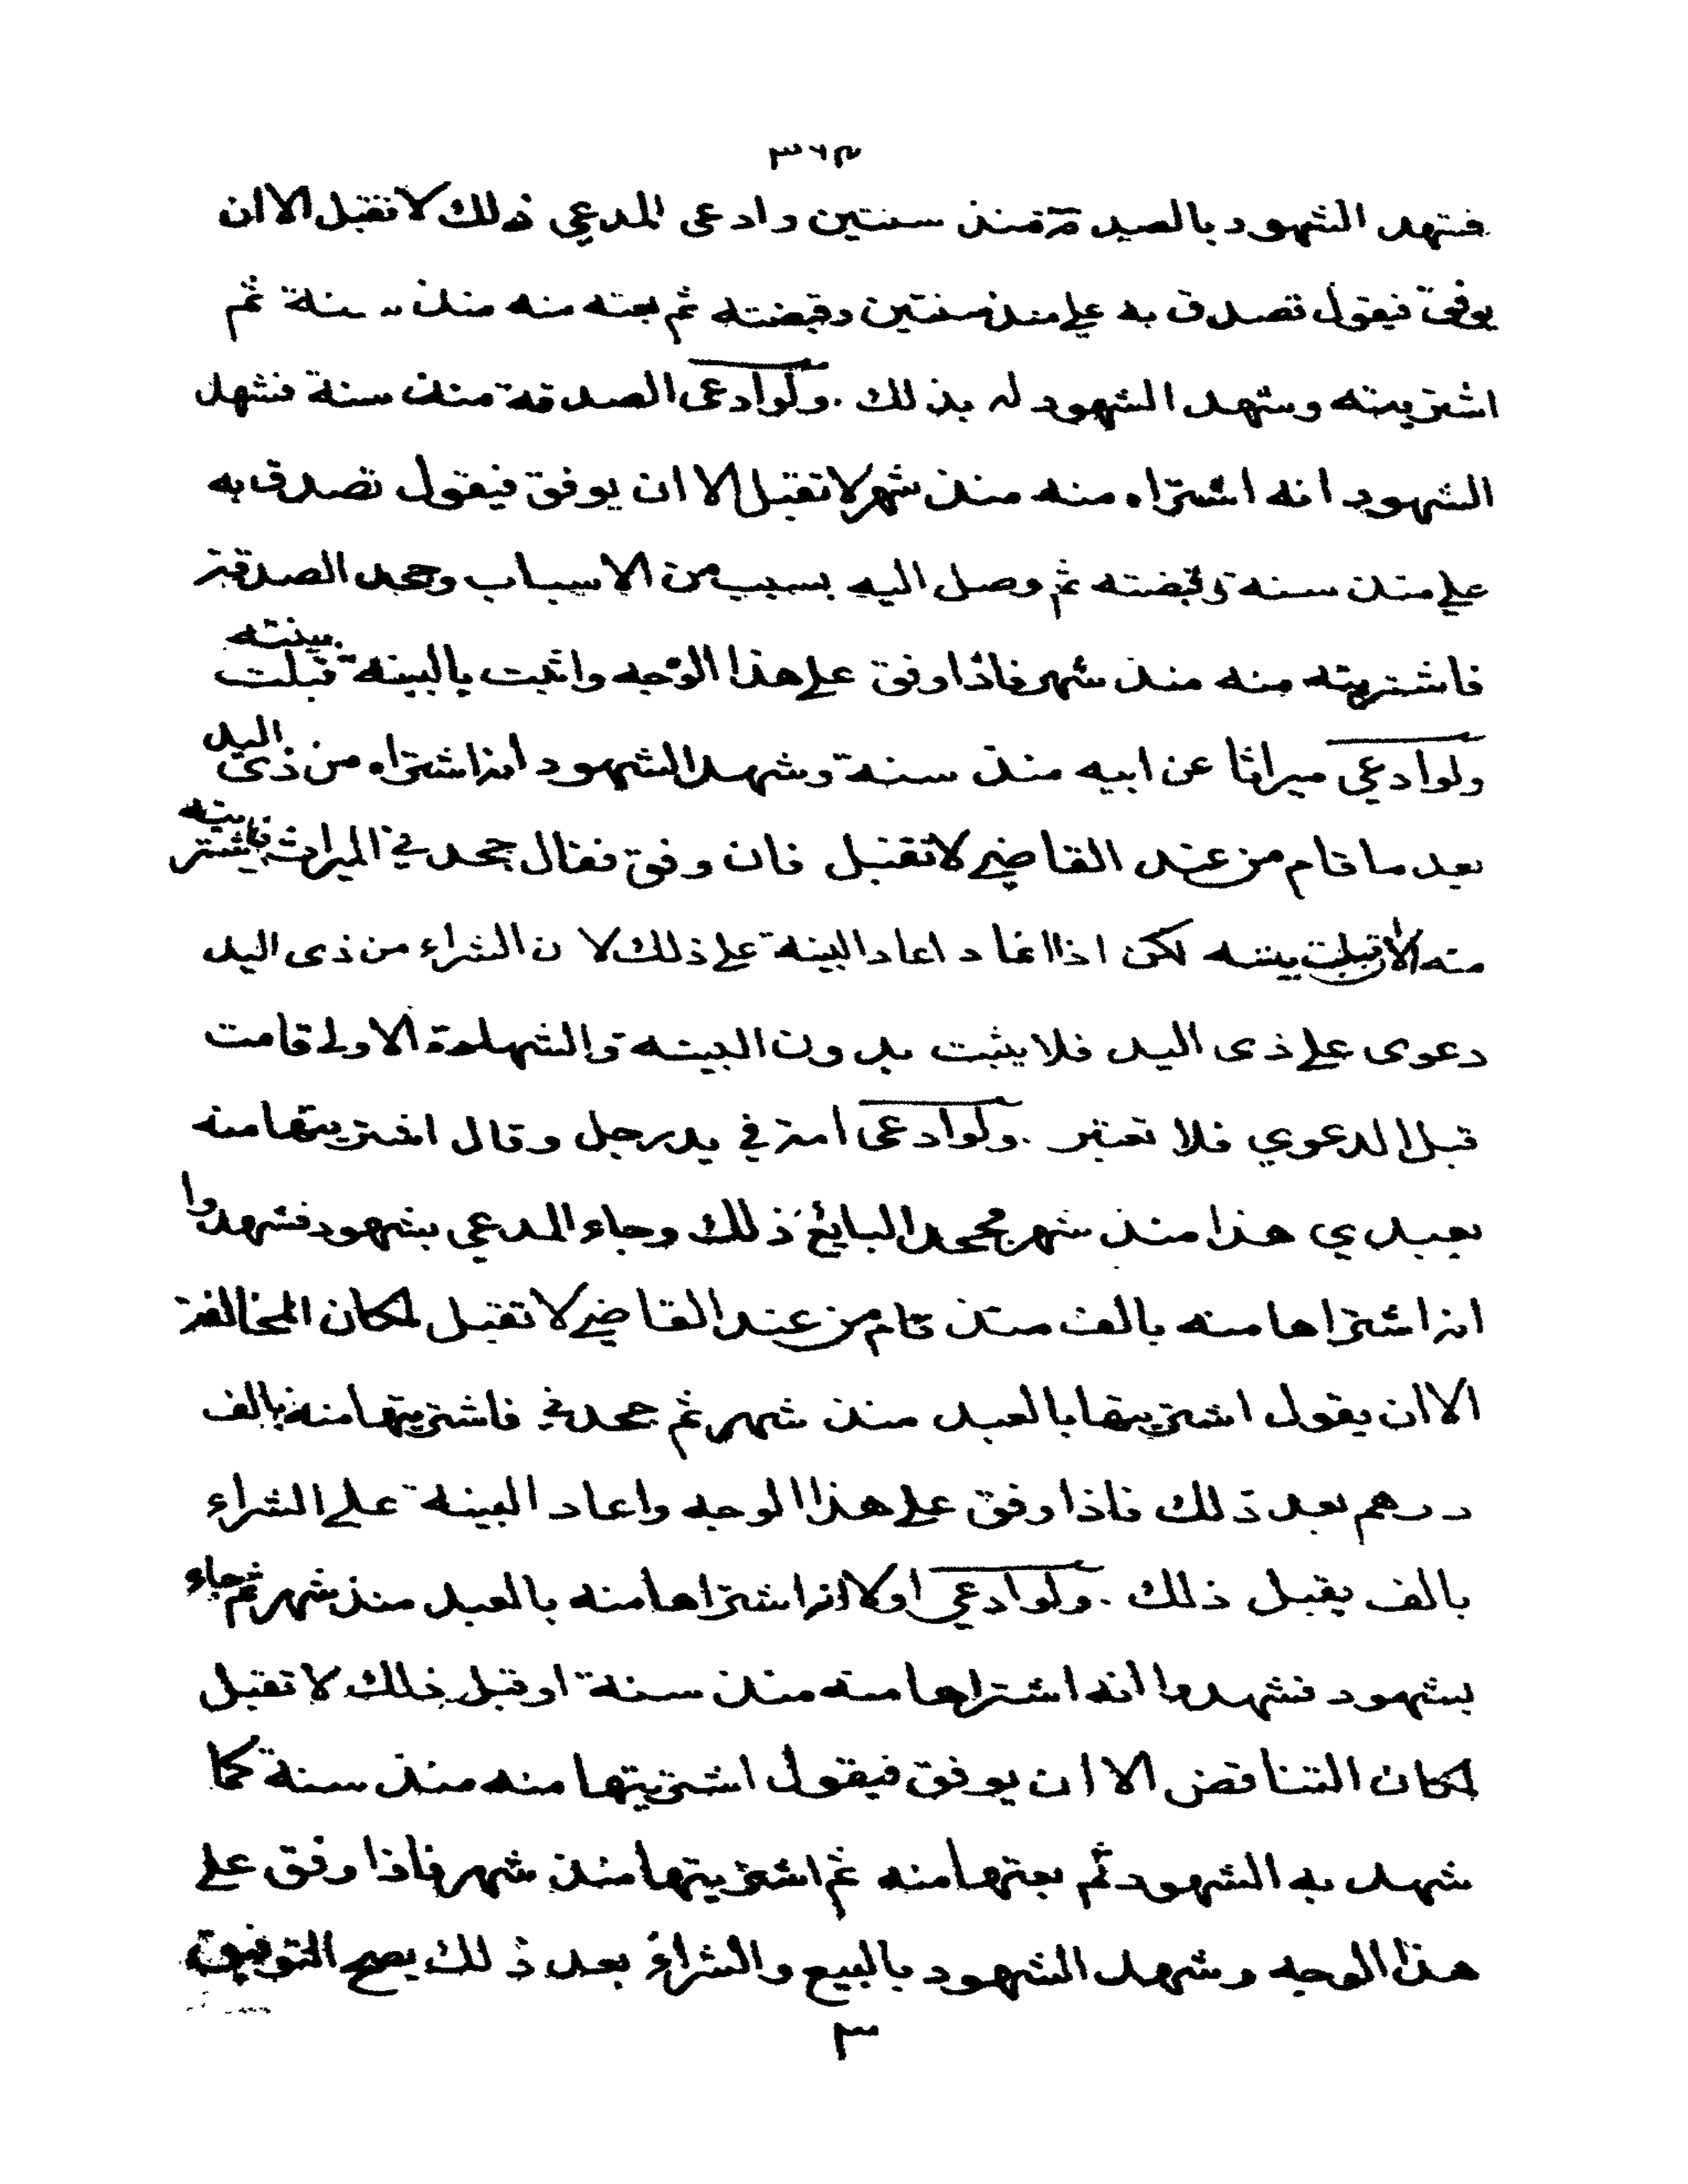 ٣٦٣
فشهد الشهود بالصدقة منذ سنتين وادعى المدعي ذلك لا تقبل الا ان
يوفق فيقول تصدق به علي منذ سنتين وقبضته ثم بعته منه منذ سنة ثم
اشتريته وشهد الشهود له بذلك . ولو ادعى الصدقة منذ سنة فشهد
الشهود انه اشتراه منه منذ شهر لا تقبل الا ان يوفق فيقول تصدق به
علي منذ سنة وقبضته ثم وصل اليه بسبب من الاسباب وجحد الصدقة
فاشتريته منه منذ شهر فاذا وفق على هذا الوجه واثبت بالبينة قبلت بينته
ولو ادعي ميراثا عن ابيه منذ سنة وشهد الشهود انه اشتراه من ذى اليد
بعد ما قام من عند القاضي لا تقبل فان وفق فقال جحدني الميراث فاشتريته
منه الان قبلت بينته لكن اذا اعاد البينة على ذلك لان الشراء من ذى اليد
دعوى على ذى اليد فلا يثبت بدون البينة والشهادة الاولى قامت
قبل الدعوي فلا تعتبر . ولو ادعى امة في يد رجل وقال اشتريتها منه
بعبدي هذا منذ شهر فجحد البايع ذلك وجاء المدعي بشهود فشهدوا
انه اشتراها منه بالف منذ قام من عند القاضي لا تقبل لمكان المخالفة
الا ان يقول اشتريتها بالعبد منذ شهر ثم جحدني فاشتريتها منه بالف
درهم بعد ذلك فاذا وفق على هذا الوجه واعاد البينة على الشراء
بالف يقبل ذلك . ولو ادعي اولا انه اشتراها منه بالعبد منذ شهر ثم جاء
بشهود فشهدوا انه اشتراها منه منذ سنة او قبل ذلك لا تقبل
لمكان التناقض الا ان يوفق فيقول اشتريتها منه منذ سنة كما
شهد به الشهود ثم بعتها منه ثم اشتريتها منذ شهر فاذا وفق على
هذا الوجه وشهد الشهود بالبيع والشراء بعد ذلك يصح التوفيق
٣